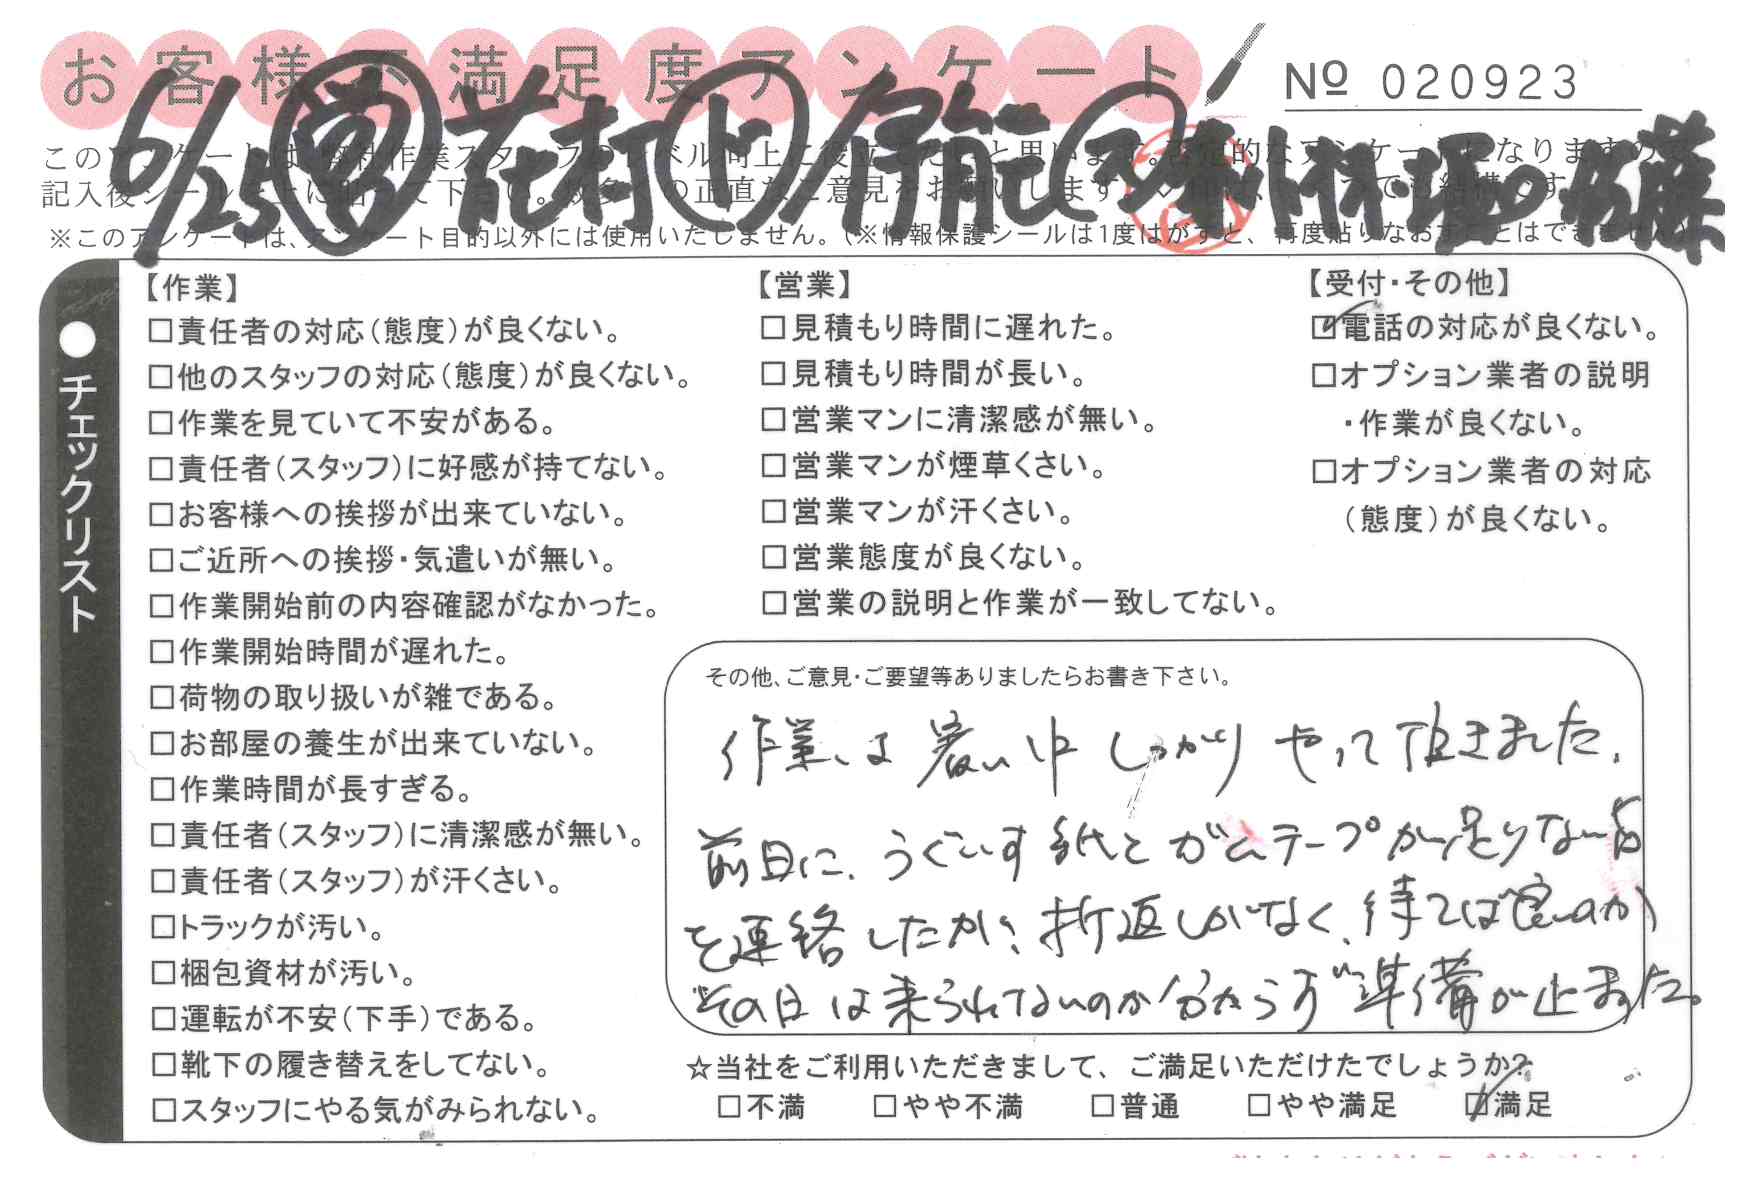 お客様不満足度アンケート
№ 020923
6/25 営 花村 ド 伊前元 マ 小村 堀の 佐藤
※このアンケートは、アンケート目的以外には使用いたしません。(※情報保護シールは1度はがすと、再度貼りなおすことはできません)
●チェックリスト
【作業】
□責任者の対応(態度)が良くない。
□他のスタッフの対応(態度)が良くない。
□作業を見ていて不安がある。
□責任者(スタッフ)に好感が持てない。
□お客様への挨拶が出来ていない。
□ご近所への挨拶・気遣いが無い。
□作業開始前の内容確認がなかった。
□作業開始時間が遅れた。
□荷物の取り扱いが雑である。
□お部屋の養生が出来ていない。
□作業時間が長すぎる。
□責任者(スタッフ)に清潔感が無い。
□責任者(スタッフ)が汗くさい。
□トラックが汚い。
□梱包資材が汚い。
□運転が不安(下手)である。
□靴下の履き替えをしてない。
□スタッフにやる気がみられない。
【営業】
□見積もり時間に遅れた。
□見積もり時間が長い。
□営業マンに清潔感が無い。
□営業マンが煙草くさい。
□営業マンが汗くさい。
□営業態度が良くない。
□営業の説明と作業が一致してない。
【受付・その他】
☑電話の対応が良くない。
□オプション業者の説明
・作業が良くない。
□オプション業者の対応
(態度)が良くない。
その他、ご意見・ご要望等ありましたらお書き下さい。
作業は暑い中しっかりやって頂きました。
前日に、うぐいす紙とガムテープが足りない旨
を連絡したが、折返しがなく、待てば良いのか
その日は来られてないのか分からず準備が止まった。
☆当社をご利用いただきまして、ご満足いただけたでしょうか?
□不満 □やや不満 □普通 □やや満足 ☑満足